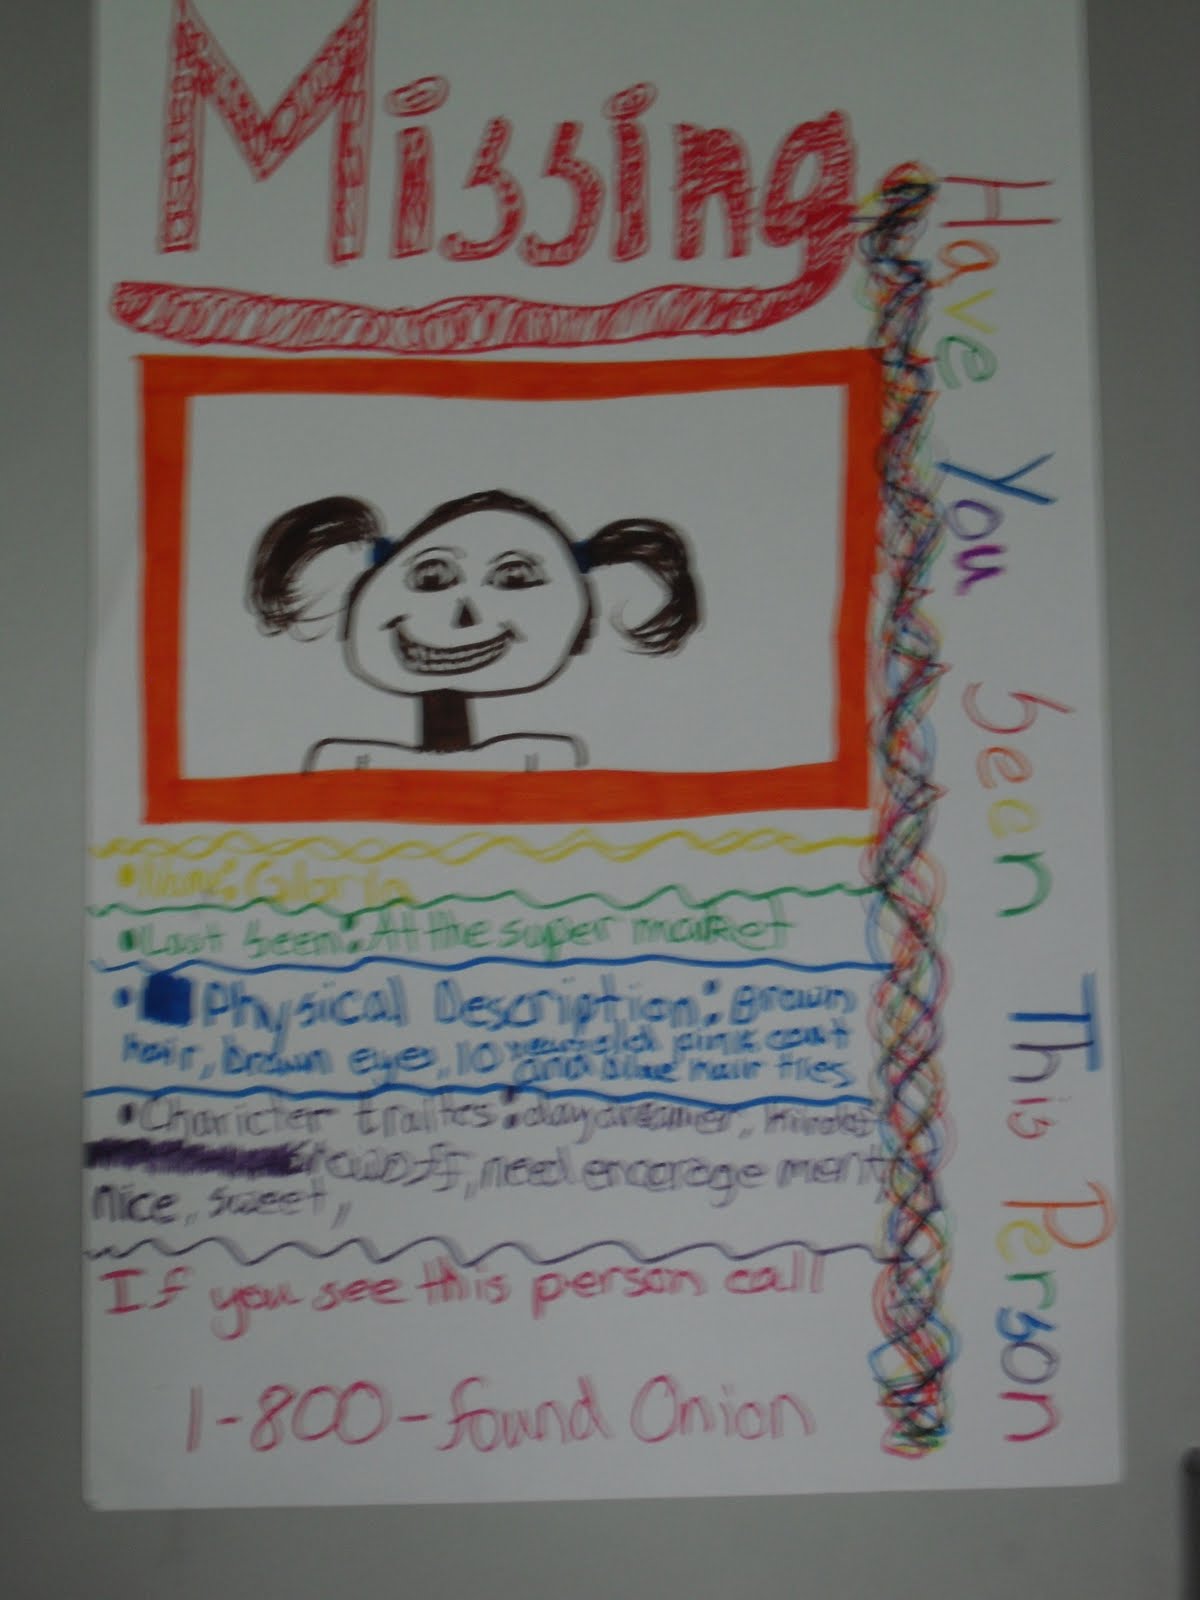 Missing
Have You Seen This Person
• Name: Gloria
• Last Seen: At the super market
• Physical Description: Brown
hair, brown eyes, 10 years old pink coat
and blue hair ties
• Charicter traites: daydreamer,
need encorage ment,
nice, sweet,
If you see this person call
1-800-found Onion